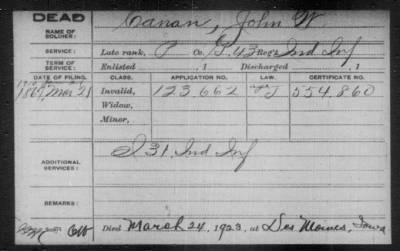 DEAD
NAME OF SOLDIER: Canan, John W.
SERVICE: Late rank, P Co. G, 43 Reg't Ind Inf
TERM OF SERVICE: Enlisted , 1 Discharged , 1
DATE OF FILING. CLASS. APPLICATION NO. LAW. CERTIFICATE NO.
1867, Mar 21 Invalid, 123,662 554,860
Widow,
Minor,
ADDITIONAL SERVICES: I 31 Ind Inf
REMARKS:
Died March 24, 1923, at Des Moines, Iowa